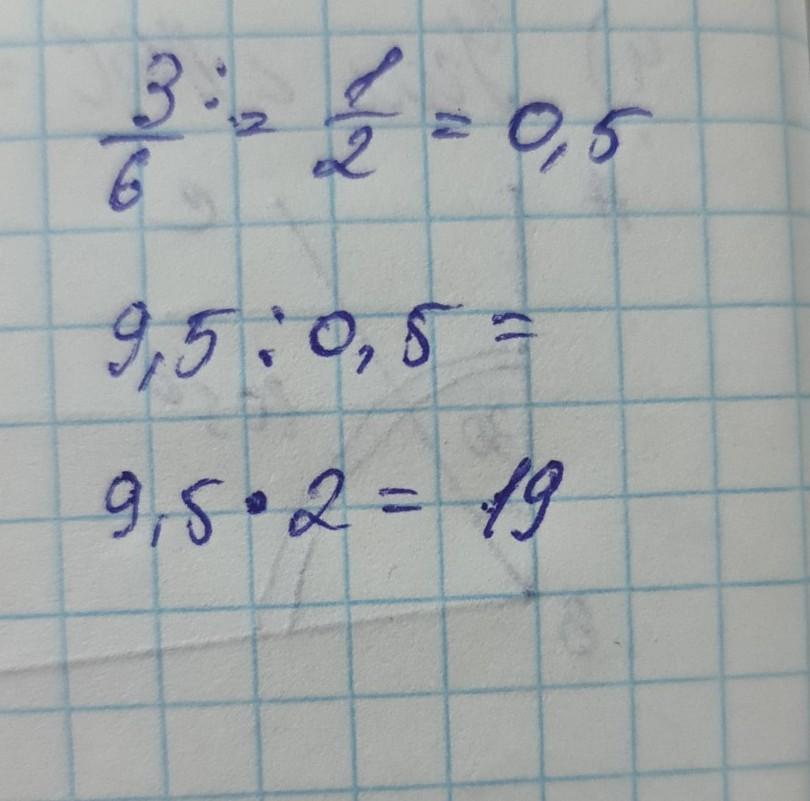 3/6 := 1/2 = 0,5
9,5 : 0,5 =
9,5 · 2 = 19